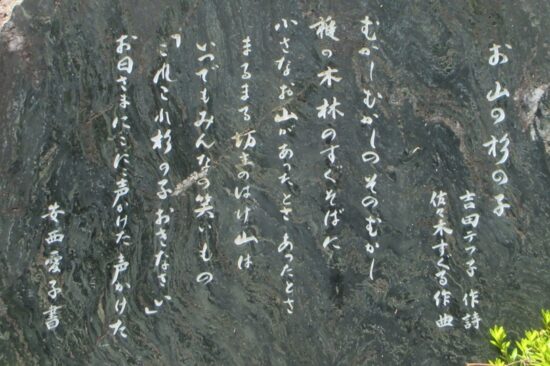 お山の杉の子
吉田テフ子 作詩
佐々木すぐる 作曲
むかしむかしのそのむかし
椎の木林のすぐそばに
小さなお山があったとさ あったとさ
まるまる坊主のはげ山は
いつでもみんなの笑いもの
「これこれ杉の子おきなさい」
お日さまにこにこ声かけた 声かけた
安西愛子書